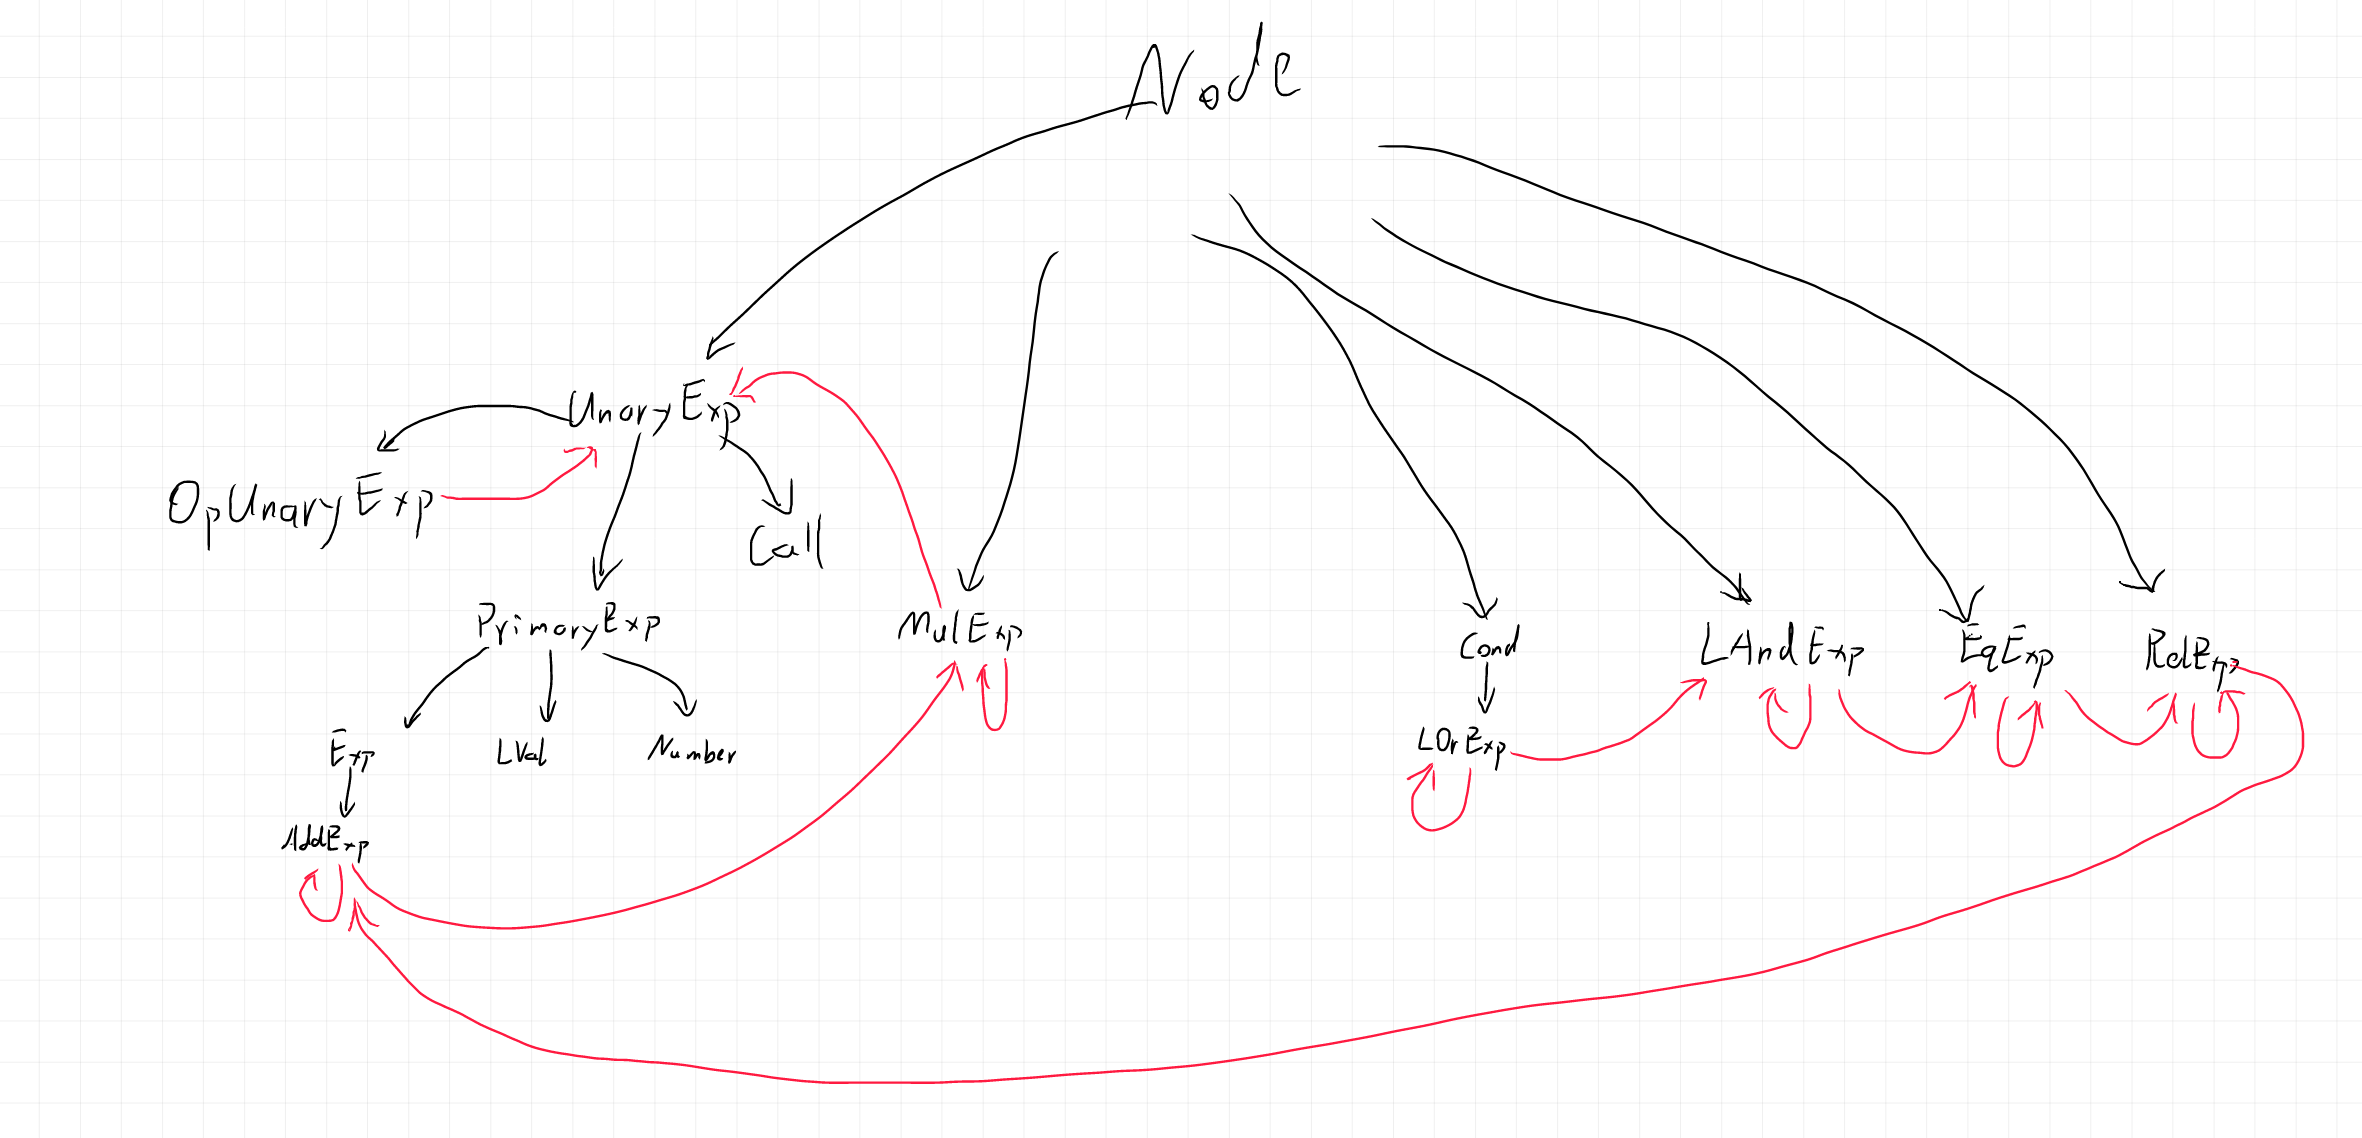 Node
UnaryExp
OpUnaryExp
Call
PrimaryExp
MulExp
Cond
LAndExp
EqExp
RelExp
Exp
LVal
Number
LOrExp
AddExp